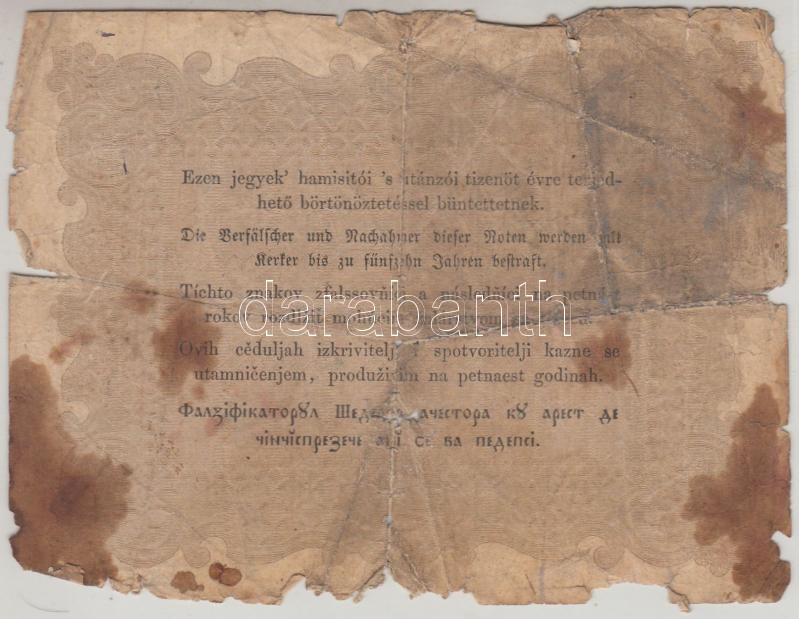 Ezen jegyek' hamisitói 's utánzói tizenöt évre terjed-
hető börtönöztetéssel büntettetnek.
Die Verfälscher und Nachahmer dieser Noten werden mit
Kerker bis zu fünfzehn Jahren bestraft.
Tíchto znakov a na
rokov
darabanth
Ovih céduljah izkrivitelji spotvoritelji kazne se
utamničenjem, produživim na petnaest godinah.
Фалзіфікаторꙋл кꙋ арест де
чінчіспрезече ані се ва педепсі.